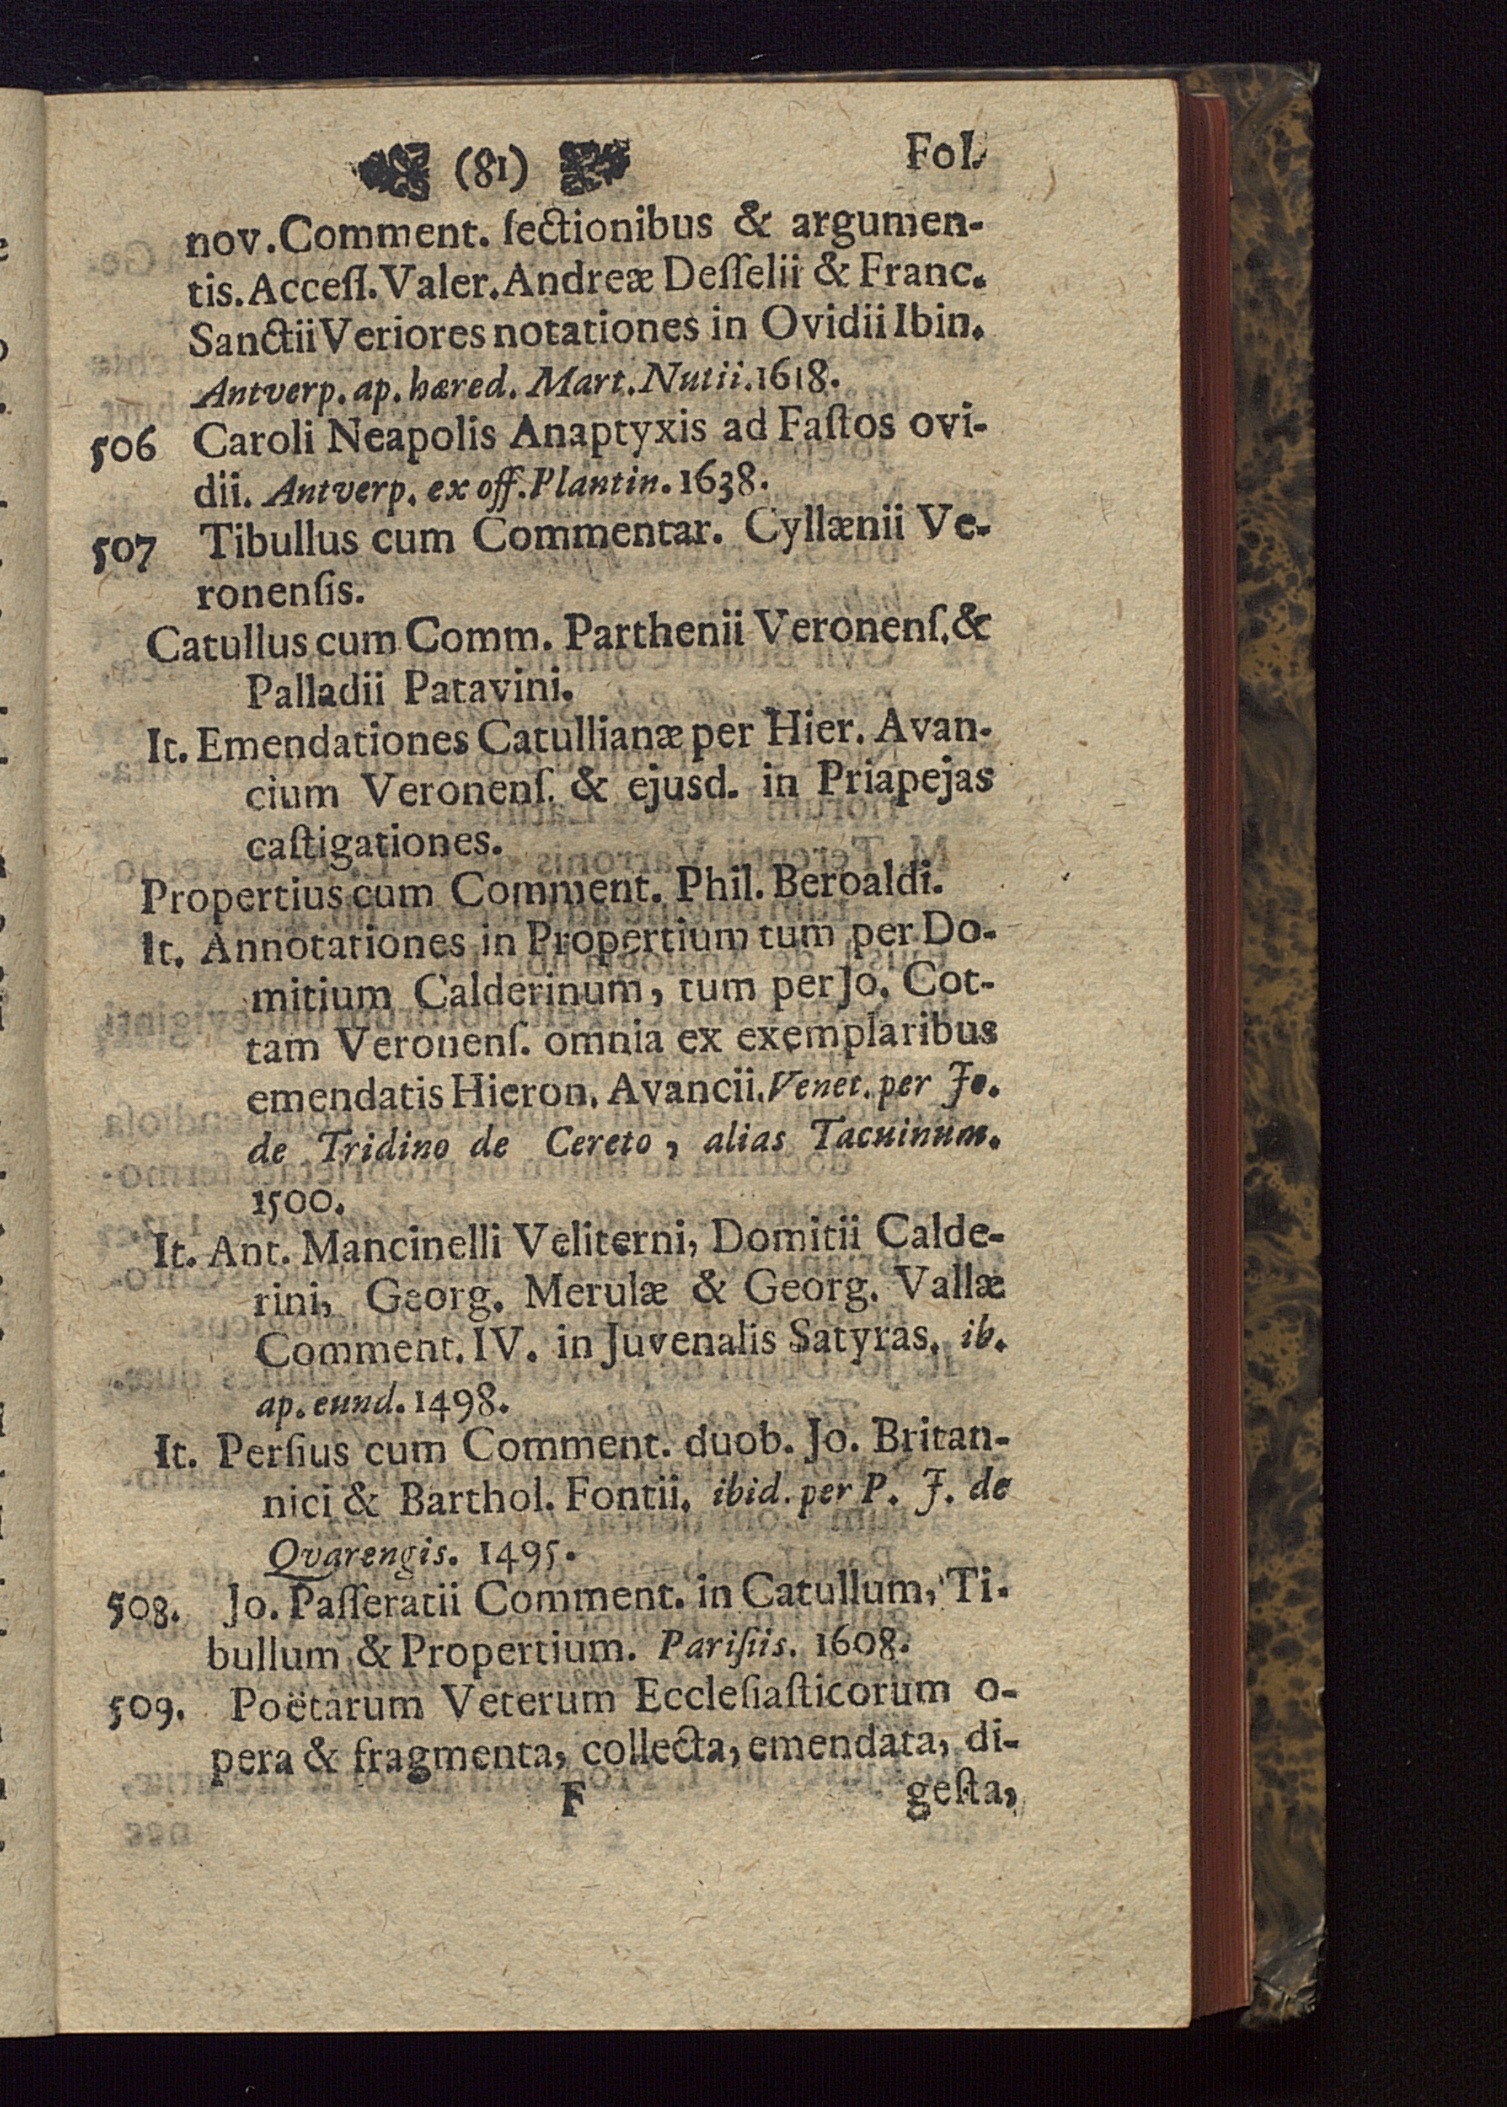 (81) Fol.
nov. Comment. ſectionibus & argumen-
tis. Acceſſ. Valer. Andreæ Deſſelii & Franc.
Sanctii Veriores notationes in Ovidii Ibin.
Antverp. ap. hæred. Mart. Nutii. 1618.
506 Caroli Neapolis Anaptyxis ad Faſtos ovi-
dii. Antverp. ex off. Plantin. 1638.
507 Tibullus cum Commentar. Cyllænii Ve-
ronenſis.
Catullus cum Comm. Parthenii Veronenſ. &
Palladii Patavini.
It. Emendationes Catullianæ per Hier. Avan-
cium Veronenſ. & ejusd. in Priapejas
caſtigationes.
Propertius cum Comment. Phil. Beroaldi.
It. Annotationes in Propertium tum per Do-
mitium Calderinum, tum per Jo. Cot-
tam Veronenſ. omnia ex exemplaribus
emendatis Hieron. Avancii. Venet. per Jo.
de Tridino de Cereto, alias Tacuinum.
1500.
It. Ant. Mancinelli Veliterni, Domitii Calde-
rini, Georg. Merulæ & Georg. Vallæ
Comment. IV. in Juvenalis Satyras. ib.
ap. eund. 1498.
It. Perſius cum Comment. duob. Jo. Britan-
nici & Barthol. Fontii. ibid. per P. J. de
Qvarengis. 1495.
508. Jo. Paſſeratii Comment. in Catullum, Ti-
bullum & Propertium. Pariſiis. 1608.
509. Poëtarum Veterum Eccleſiaſticorum o-
pera & fragmenta, collecta, emendata, di-
F geſta,